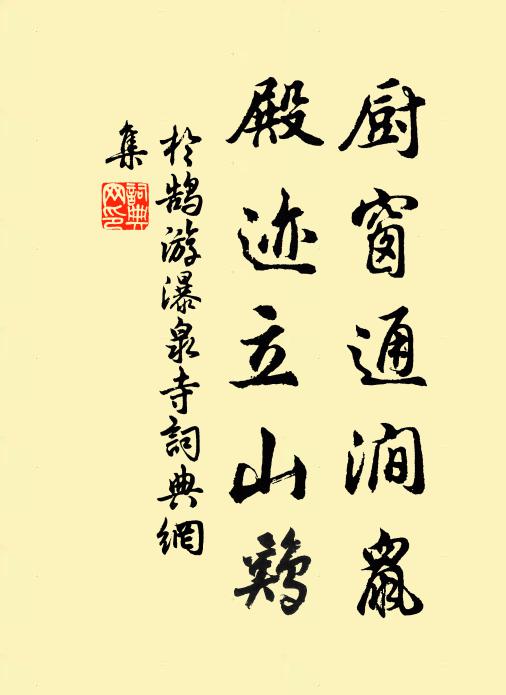 厨窗通涧鼠
殿迹立山鸡
於鹄游瀑泉寺詞典網
集
詞典网印